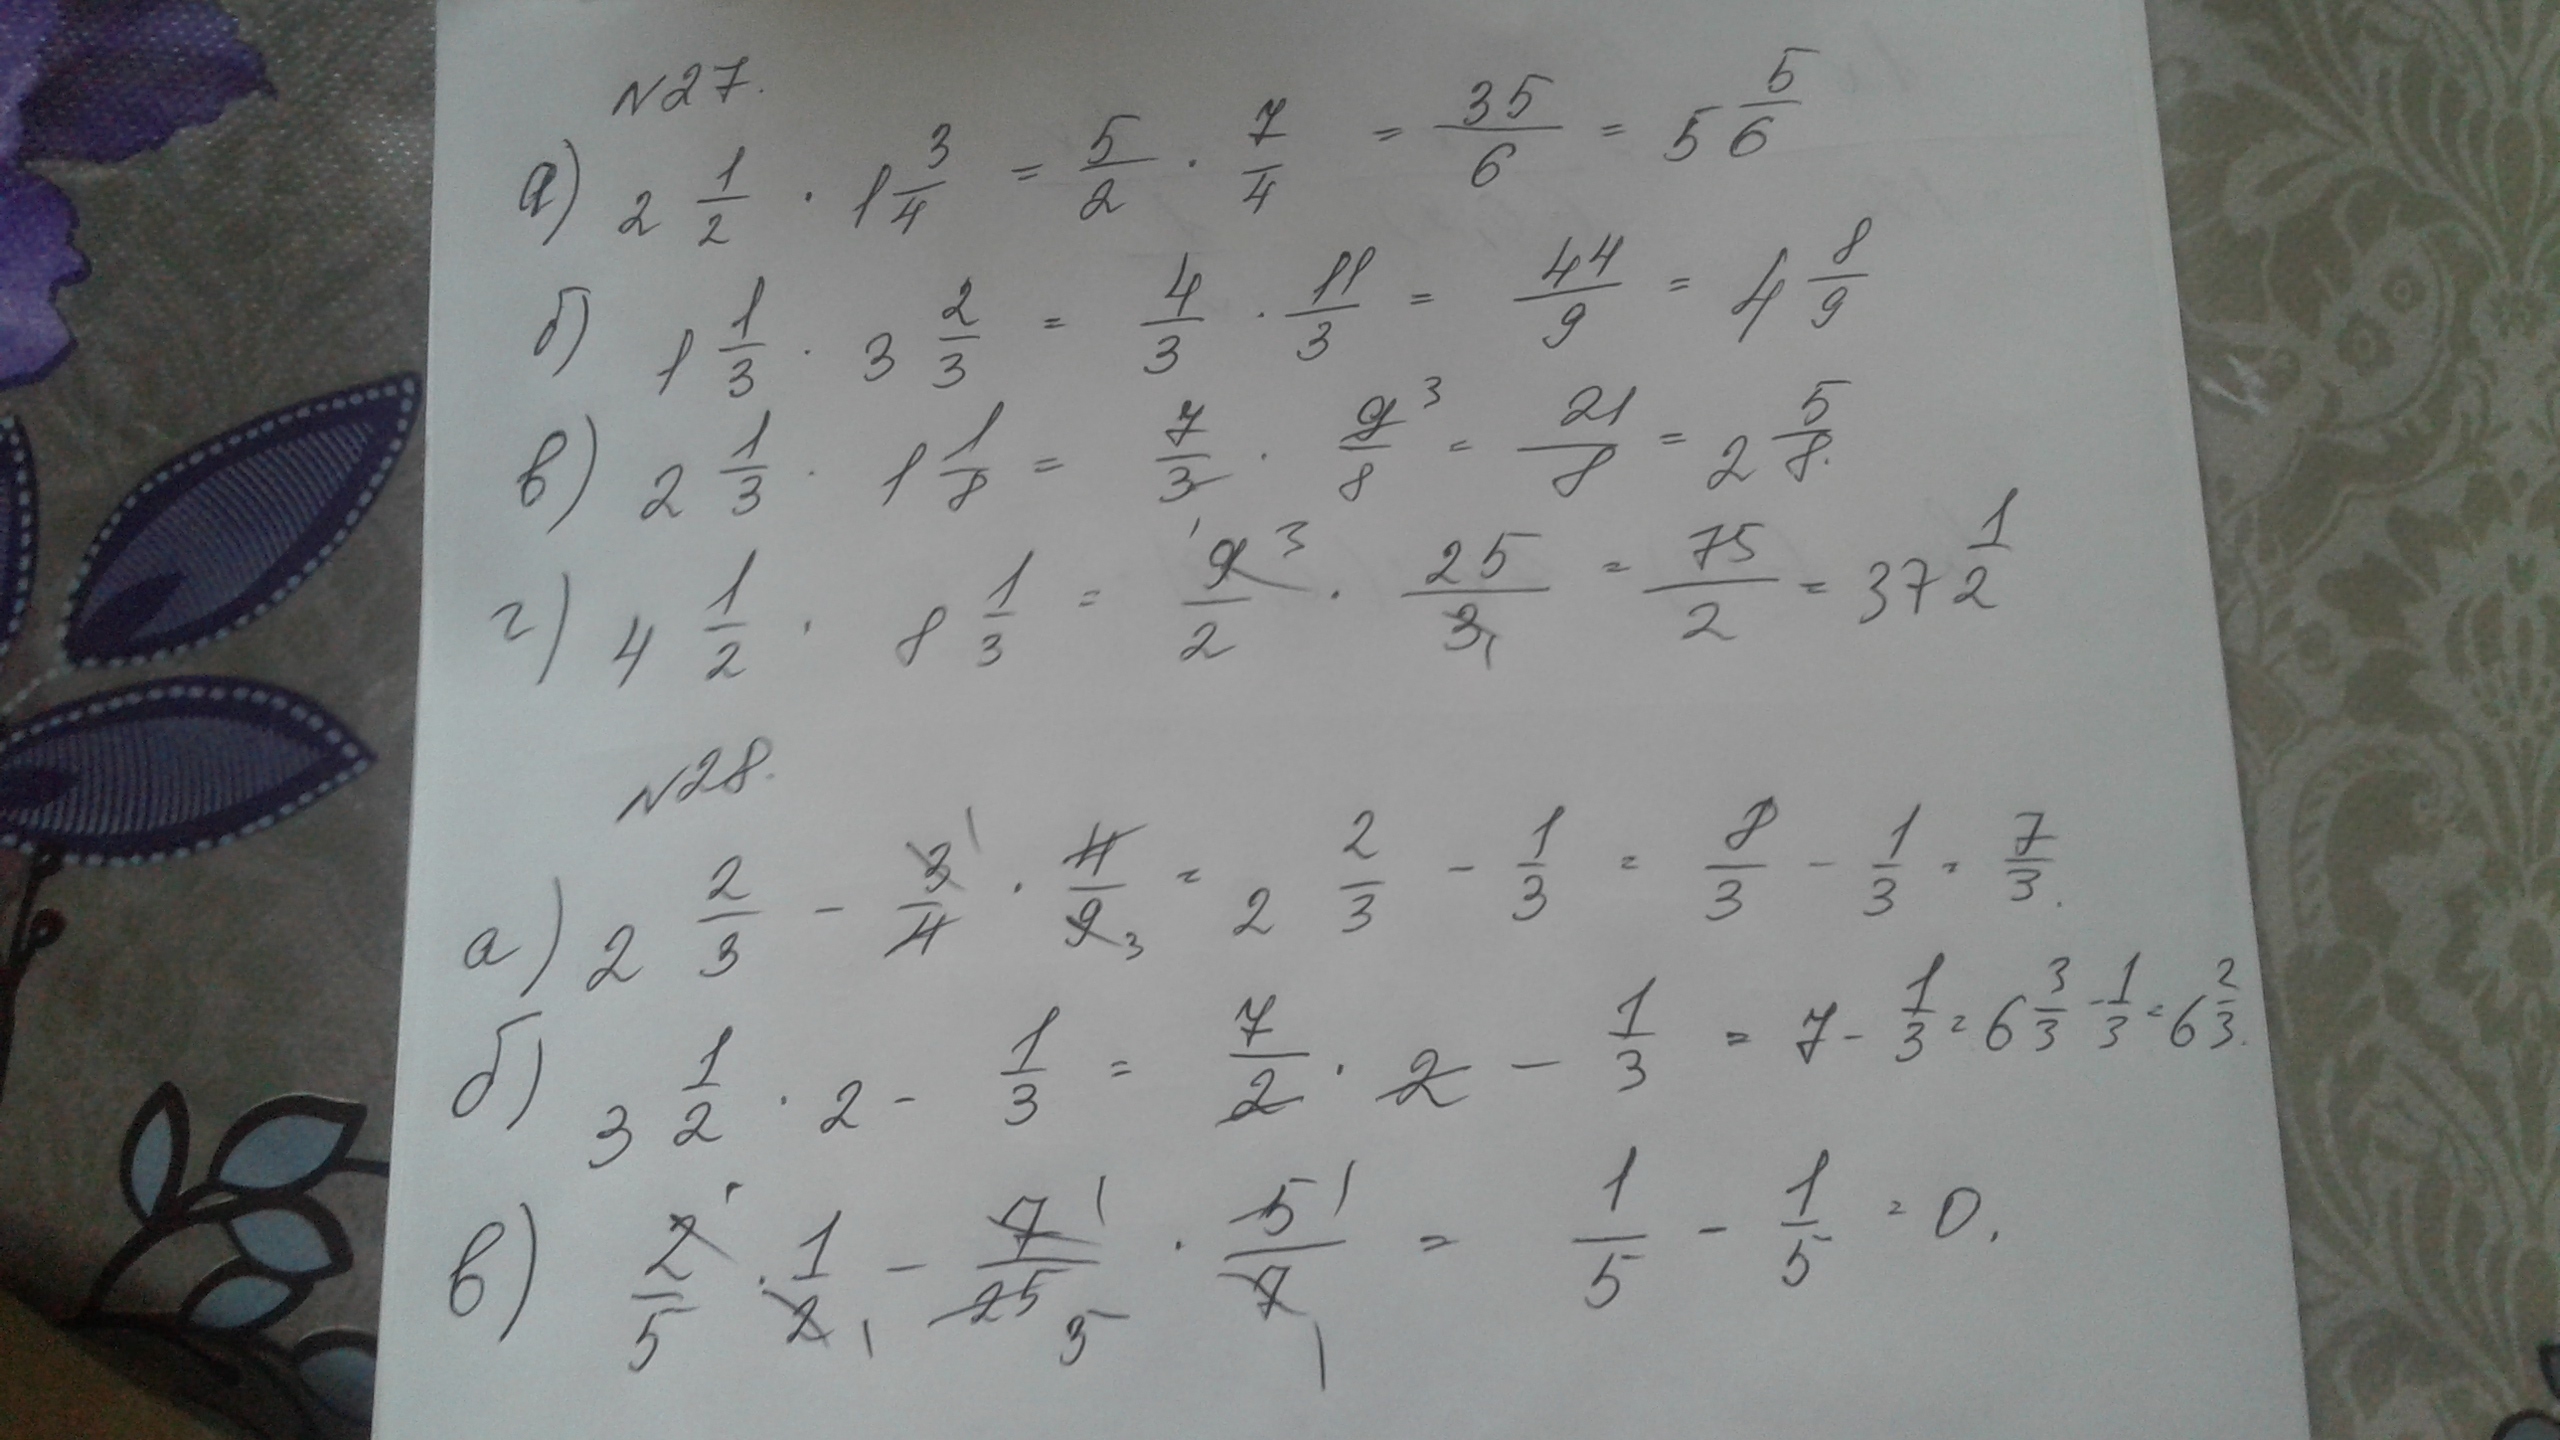 N27.
а) 2 1/2 · 1 3/4 = 5/2 · 7/4 = 35/6 = 5 5/6
б) 1 1/3 · 3 2/3 = 4/3 · 11/3 = 44/9 = 4 8/9
в) 2 1/3 · 1 1/8 = 7/3 · 9/8 3 = 21/8 = 2 5/8.
г) 4 1/2 · 8 1/3 = 9 3/2 · 25/3 1 = 75/2 = 37 1/2
N28.
а) 2 2/3 - 3 1/4 · 4/9 3 = 2 2/3 - 1/3 = 8/3 - 1/3 = 7/3.
б) 3 1/2 · 2 - 1/3 = 7/2 · 2 - 1/3 = 7 - 1/3 = 6 3/3 - 1/3 = 6 2/3.
в) 2 1/5 · 1/2 1 - 7 1/25 5 · 5 1/7 1 = 1/5 - 1/5 = 0.